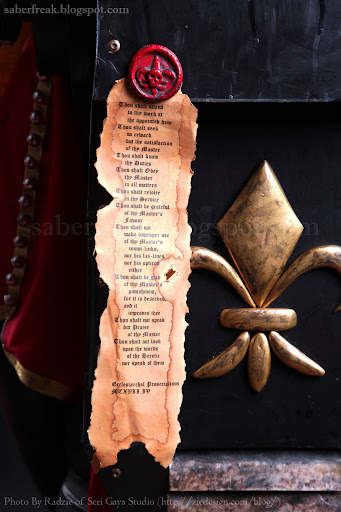 saberfreak.blogspot.com
Thou shalt attend
to thy work at
the appointed hour
Thou shalt seek
no reward
but the satisfaction
of thy Master
Thou shalt know
thy Duties
Thou shalt Obey
thy Master
in all matters
Thou shalt rejoice
in thy Service
Thou shalt be grateful
of thy Master's
Favour
Thou shalt not
make improper use
of thy Master's
nor his las-lives,
nor his
either
Thou shalt be glad
of thy Master's
punishment,
for it is deserved,
and it
improves thee
Thou shalt not speak
but Praise
of thy Master
Thou shalt not look
upon the works
of the Heretic
nor speak of them
Ecclesiarchal Proscriptions
MCXVII.IV
saberfreak.blogspot.com
Photo By Radzie of Seri Gaya Studio (http://ziedesign.com/blog/)